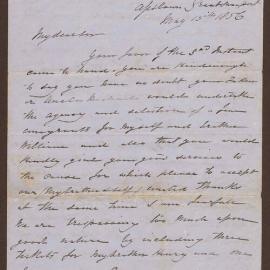 May 15th 1856
My dear Sir
Your favor of the 3rd Instant
came to hand. you are kind enough
to say you have no doubt your Father
or Uncle would undertake
the agency and selection of a few
emigrants for myself and Brother
William and also that you would
kindly give your good services to
the cause for which please to accept
our united thanks
at the same time I am fearful
we are trespassing too much upon
good nature by including three
tickets for my brother Henry and one